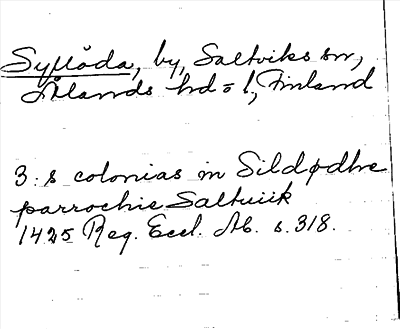 Syllöda, by, Saltviks sn,
Ålands hd o l, Finland
3 s colonias in Sildødhe
parrochie Saltuiik
1425 Reg. Eccl. Ab. s. 318.